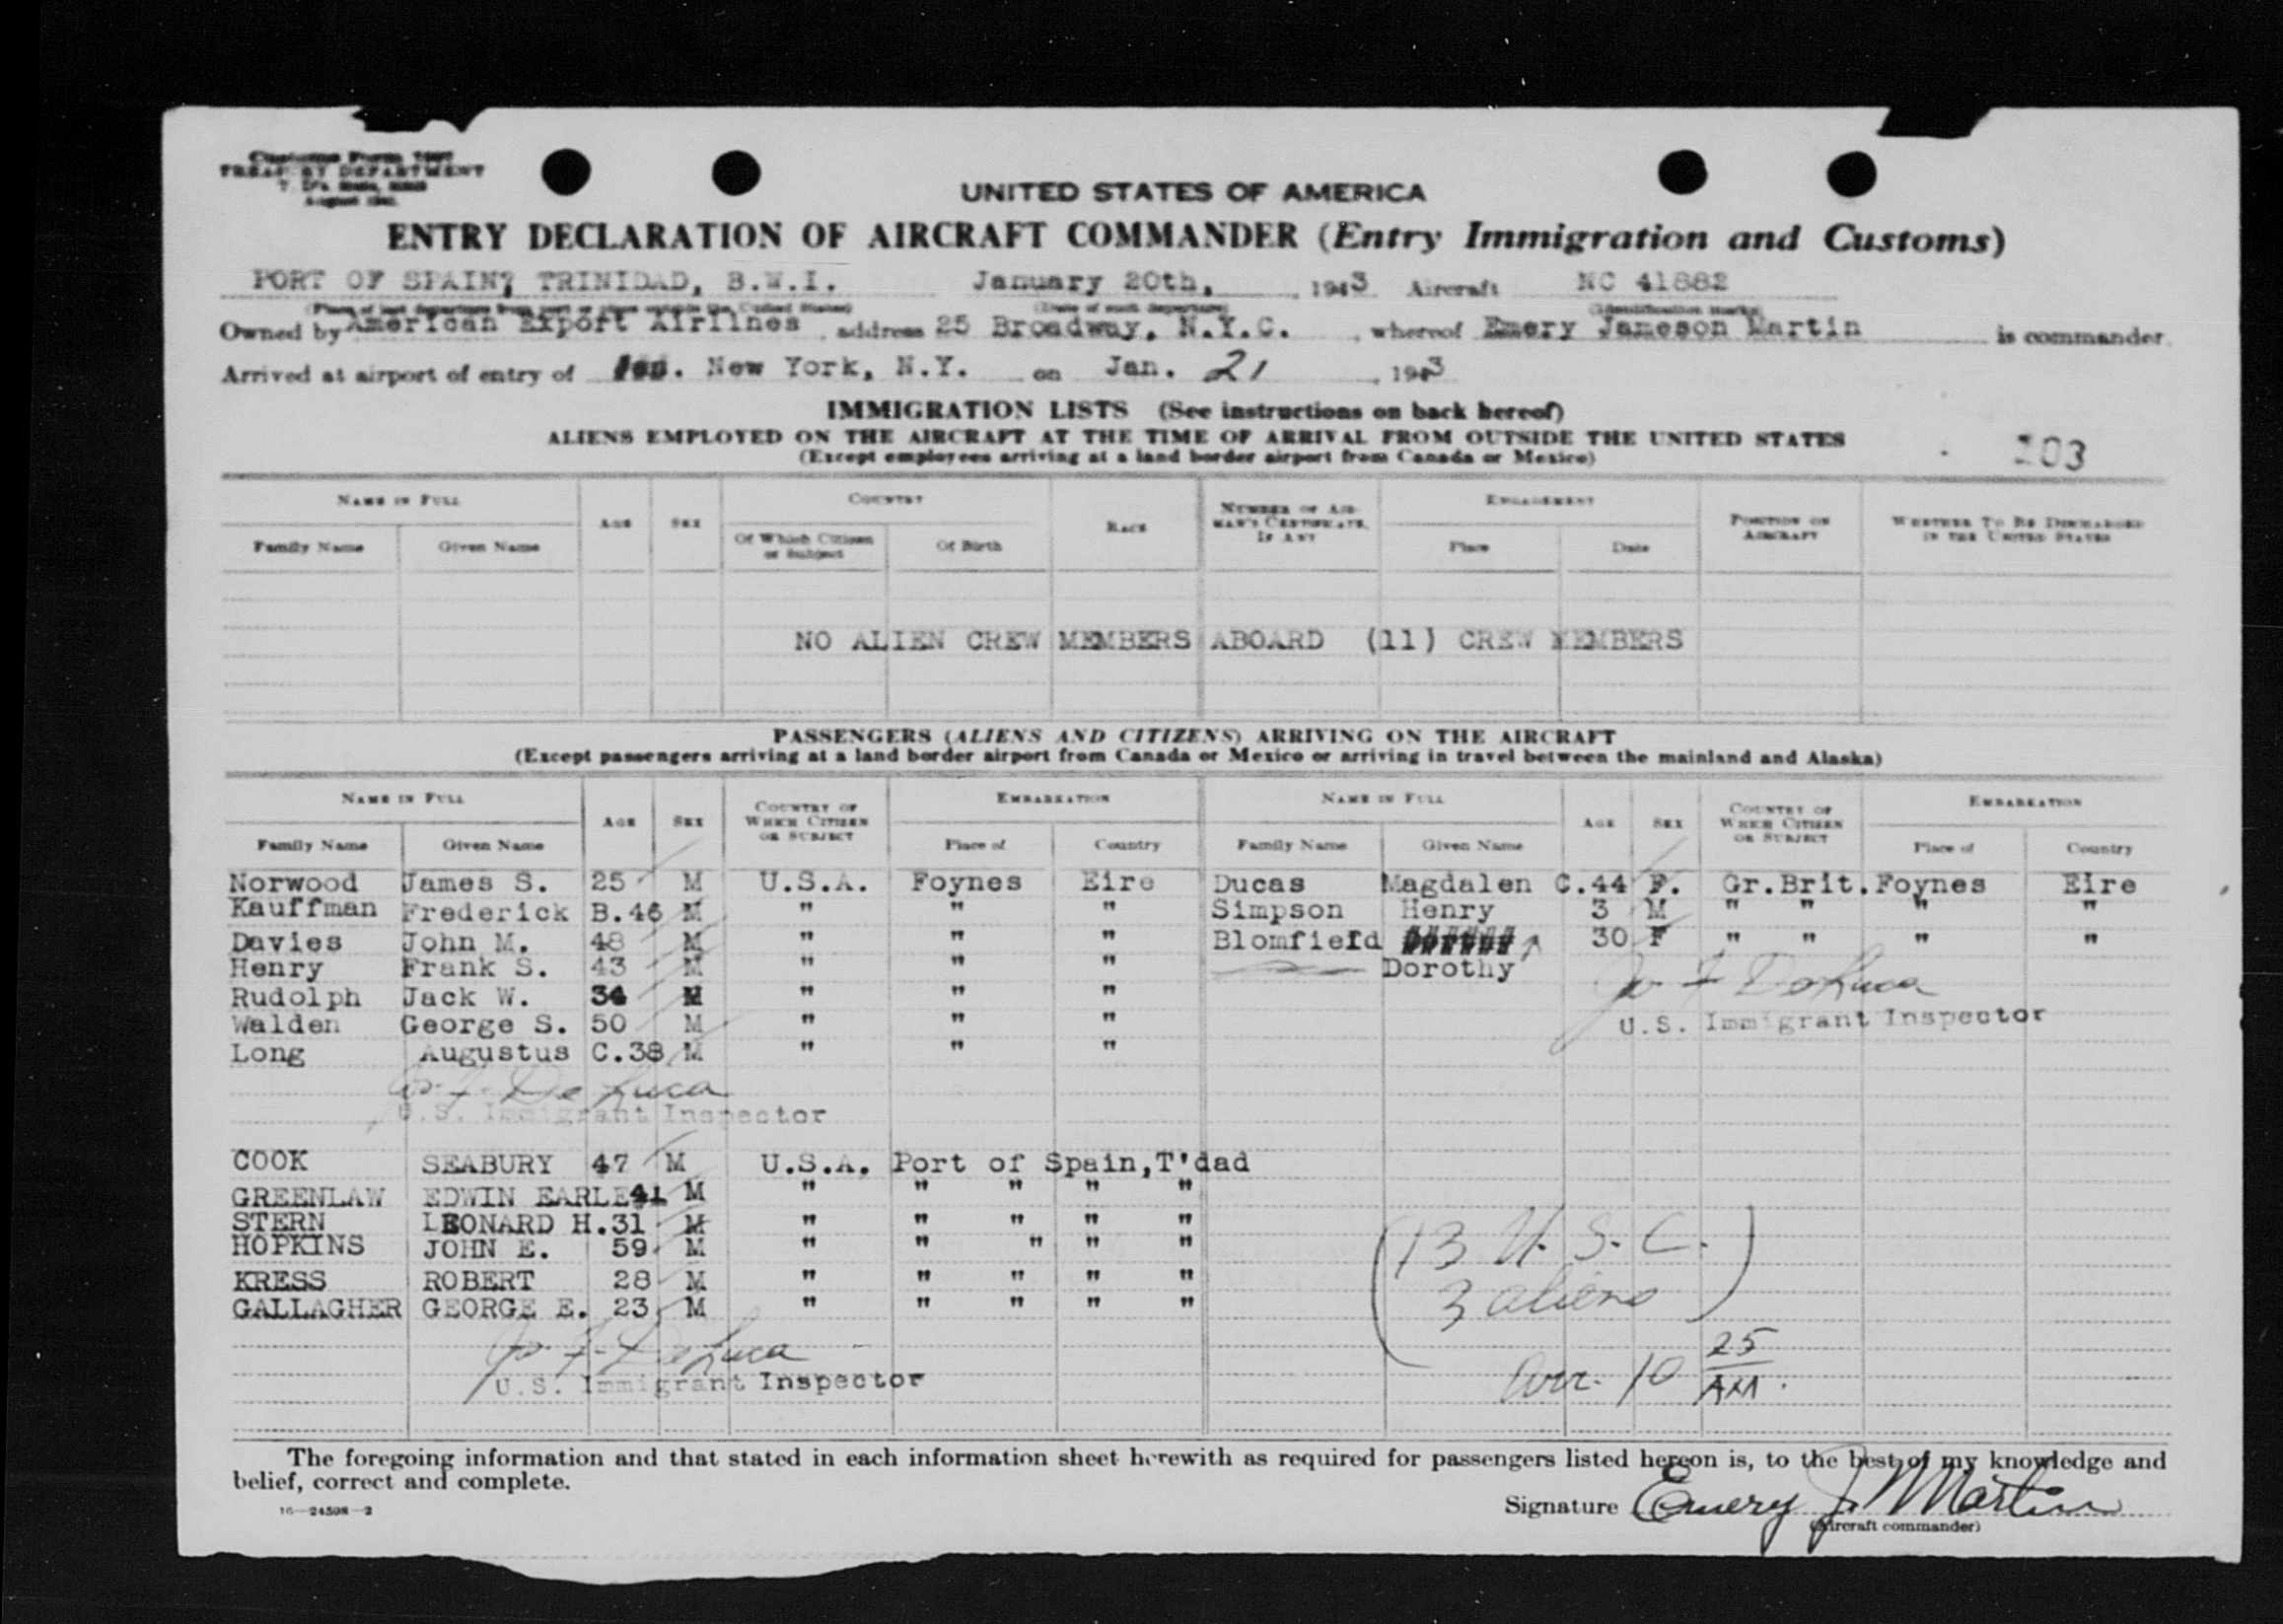 Customs Form 7507
TREASURY DEPARTMENT
August
UNITED STATES OF AMERICA
ENTRY DECLARATION OF AIRCRAFT COMMANDER (Entry Immigration and Customs)
PORT OF SPAIN, TRINIDAD, B.W.I. January 20th, , 1943 Aircraft NC 41882
(Place of last departure from port or place outside the United States) (Date of such departure) (Identification marks)
Owned by American Export Airlines , address 25 Broadway, N.Y.C. , whereof Emery Jameson Martin is commander.
Arrived at airport of entry of New York, N.Y. on Jan. 21 , 1943
IMMIGRATION LISTS (See instructions on back hereof)
ALIENS EMPLOYED ON THE AIRCRAFT AT THE TIME OF ARRIVAL FROM OUTSIDE THE UNITED STATES
(Except employees arriving at a land border airport from Canada or Mexico)
103
NAME IN FULL AGE SEX COUNTRY RACE NUMBER OF AIRMAN'S CERTIFICATE, IF ANY ENGAGEMENT POSITION ON AIRCRAFT WHETHER TO BE DISCHARGED IN THE UNITED STATES
Family Name Given Name Of Which Citizen or Subject Of Birth Place Date
NO ALIEN CREW MEMBERS ABOARD (11) CREW MEMBERS
PASSENGERS (ALIENS AND CITIZENS) ARRIVING ON THE AIRCRAFT
(Except passengers arriving at a land border airport from Canada or Mexico or arriving in travel between the mainland and Alaska)
NAME IN FULL AGE SEX COUNTRY OF WHICH CITIZEN OR SUBJECT EMBARKATION NAME IN FULL AGE SEX COUNTRY OF WHICH CITIZEN OR SUBJECT EMBARKATION
Family Name Given Name Place of Country Family Name Given Name Place of Country
Norwood James S. 25 M U.S.A. Foynes Eire Ducas Magdalen C. 44 F. Gr.Brit. Foynes Eire
Kauffman Frederick B. 46 M " " " Simpson Henry 3 M " " " "
Davies John M. 48 M " " " Blomfield 30 F " " " "
Henry Frank S. 43 M " " " Dorothy
Rudolph Jack W. 34 M " " " Jo F DeLuca
Walden George S. 50 M " " " U.S. Immigrant Inspector
Long Augustus C. 38 M " " "
Jo. F. DeLuca
U.S. Immigrant Inspector
COOK SEABURY 47 M U.S.A. Port of Spain, T'dad
GREENLAW EDWIN EARLE 41 M " " " " "
STERN LEONARD H. 31 M " " " " "
HOPKINS JOHN E. 59 M " " " " "
KRESS ROBERT 28 M " " " " "
GALLAGHER GEORGE E. 23 M " " " " "
(13 U.S.C.
3 aliens)
Jo. F. DeLuca
U.S. Immigrant Inspector
Arr. 10 25 AM.
The foregoing information and that stated in each information sheet herewith as required for passengers listed hereon is, to the best of my knowledge and
belief, correct and complete.
16—24598-2
Signature Emery J. Martin
(Aircraft commander)